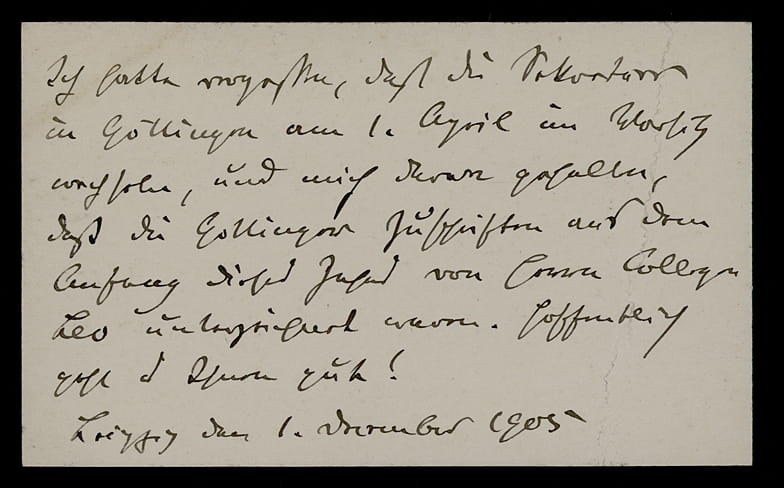 Ich hatte vergessen, daß die Sekretäre
in Göttingen am 1. April im Vorsitz
wechseln, und mich daran gehalten,
daß die Göttinger Zuschriften aus dem
Anfang dieses Jahres von Herrn Collegen
Leo unterzeichnet waren. Hoffentlich
geht es Ihnen gut!
Leipzig den 1. December 1905